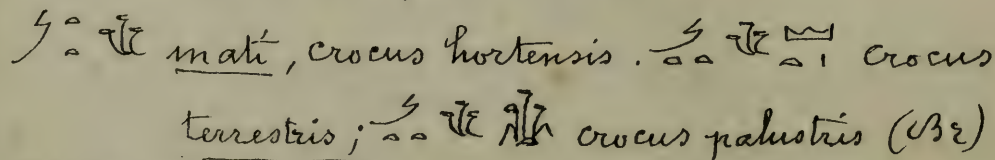 mati, crocus hortensis. crocus
terrestris; crocus palustris (Br)